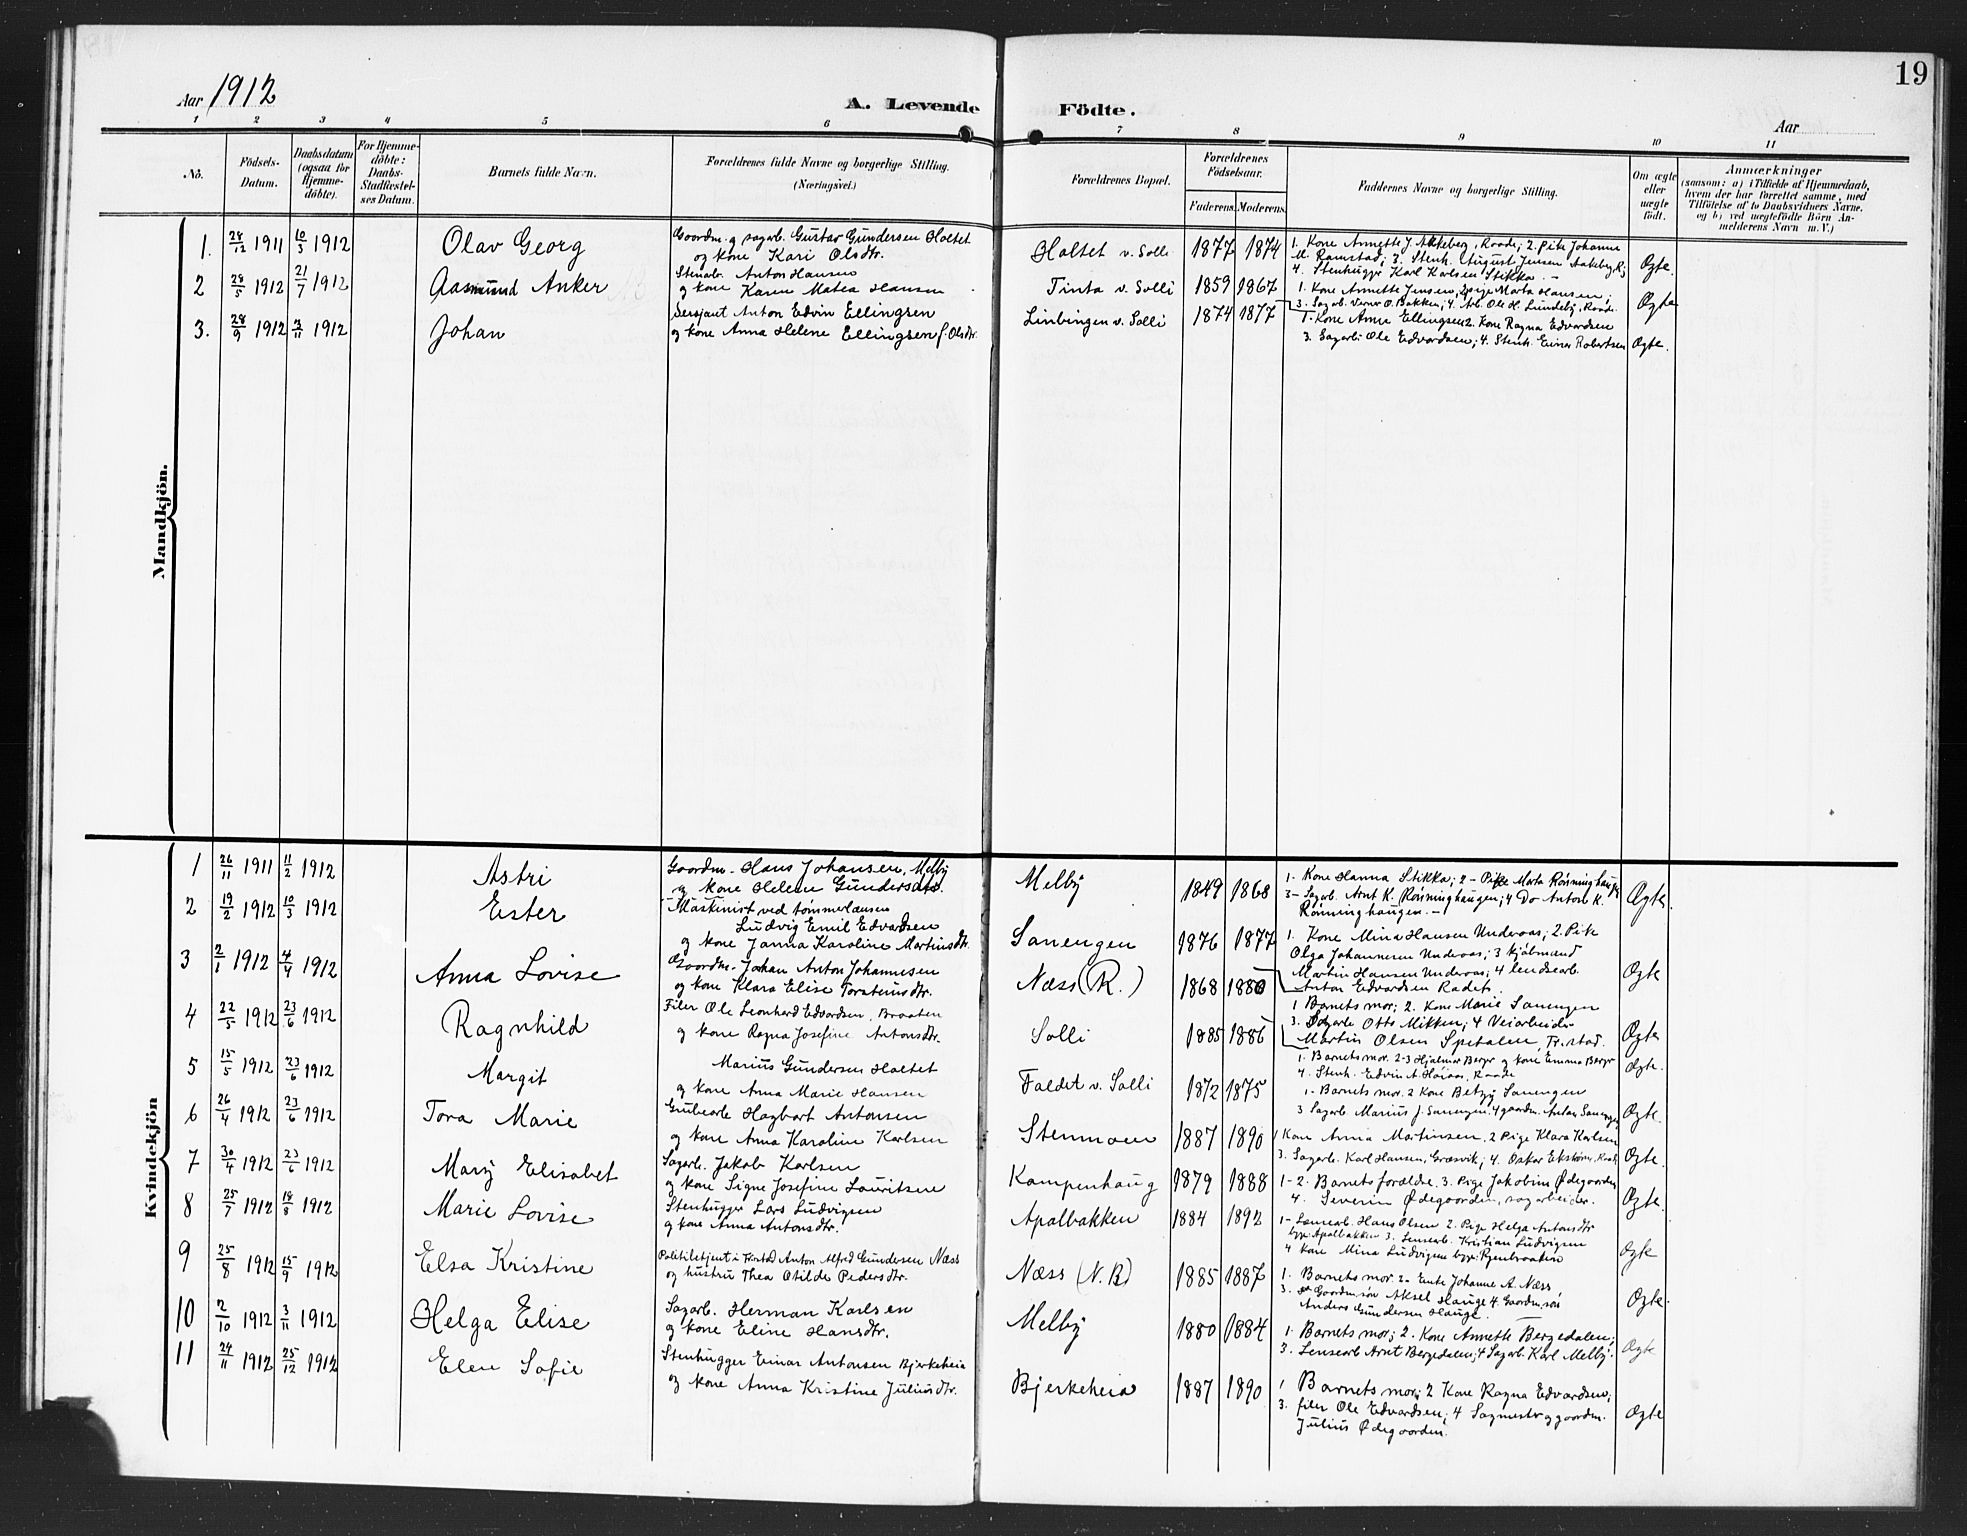 19
Aar 1912
A. Levende Födte.
Aar
1 2 3 4 5 6 7 8 9 10 11
No.
Födsels-Datum.
Daabsdatum (ogsaa for Hjemme-döbte).
For Hjemme-döbte: Daabs-Stadfæstel-ses Datum.
Barnets fulde Navn.
Forældrenes fulde Navne og borgerlige Stilling.
(Næringsvei.)
Forældrenes Bopæl.
Forældrenes Födselsaar.
Faderens. Moderens.
Faddernes Navne og borgerlige Stilling.
Om ægte eller uægte födt.
Anmærkninger
(saasom: a) i Tilfælde af Hjemmedaab,
hvem der har forrettet samme, med
Tilföielse af to Daabsvidners Navne,
og b) ved uægtefödte Börn An-
melderens Navn m. V.)
Mandkjön.
1. 28/12 1911 10/3 1912 Olav Georg
Gaardm. og sagarb. Gustav Gundersen Holtet
og kone Kari Olsdtr.
Holtet v. Solli 1877 1874
1. Kone Annette J. Akkeberg, Raade; 2. Pike Johanne
M. Ramstad; 3. Stenh. August Jensen Aakeberg R;
4. Stenhugger Karl Karlsen Stikka. -
Ægte.
2 28/5 1912 21/7 1912 Aasmund Anker
Stenarb. Anton Hansen
og kone Karen Matea Hansen
Tinta v. Solli 1859 1867
1. Kone Annette Jensen, 2. pige Marta Hansen;
3. Sagarb. Verner O. Bakken; 4. Arb. Ole H. Lundeby, Raade.
Ægte
3. 28/9 1912 3/11 1912 Johan
Sersjant Anton Edvin Ellingsen
og kone Anna Helene Ellingsen f. Olsdtr.
Linbingen v. Solli 1874 1877
1. Kone Anne Ellingsen 2. Kone Ragna Edvardsen
3. Sagarb. Ole Edvardsen; 4. Stenh. Einar Robertsen
Ægte.
Kvindekjön
1 26/11 1911 11/2 1912 Astri
Gaardm. Hans Johansen, Melby
og kone Helene Gundersdtr.
Melby 1849 1868
1- Kone Hanna Stikka; 2- Pike Marta Rönninghaugen
3- Sagarb. Arnt K. Rönninghaugen; 4 Do Anton K.
Rönninghaugen. -
Ægte.
2 19/2 1912 10/3 1912 Ester
Maskinist ved tömmerlænsen
Ludvig Emil Edvardsen
og kone Janna Karoline Martinsdtr.
Sanengen 1876 1877
1. Kone Mina Hansen Underaas; 2. Pike
Olga Johannesen Underaas; 3 kjöbmænd
Martin Hansen Underaas; 4 lendsearb.
Anton Edvardsen Radets.
Ægte
3 2/1 1912 4/4 1912 Anna Lovise
Gaardm. Johan Anton Johannesen
og kone Klara Elise Torsteinsdtr.
Næss (R.) 1868 1880
1 Barnets mor; 2. Kone Marie Sanengen
3. Sagarb Otto Mikken; 4 Veiarbeider
Martin Olsen Spetalen, Fr.stad.
Ægte
4 22/5 1912 23/6 1912 Ragnhild
Filer Ole Leonhard Edvardsen, Braaten
og kone Ragna Josefine Antonsdtr.
Solli 1885 1886
1. Barnets mor. 2-3 Hjalmar Berger og kone Emma Berger
4. Stenh. Edvin A. Höiaas, Raade
Ægte.
5 15/5 1912 23/6 1912 Margit
Marius Gundersen Holtet
og kone Anna Marie Hansen
Faldet v. Solli 1872 1875
1- Barnets mor. 2 Kone Betzy Sanengen
3 Sagarb Marius J. Sanengen. 4 gaardm. Anton Sanengen
Ægte.
6 26/4 1912 23/6 1912 Tora Marie
Grubearb Hagbart Antonsen
og kone Anna Karoline Karlsen
Stenmoen 1887 1890
1 Kone Anna Martinsen, 2 Pige Klara Karlsen
3. Sagarb. Karl Hansen, Græsvik; 4. Oskar Ekström, Raade
Ægte.
7 30/4 1912 23/6 1912 Mary Elisabet
Sagarb. Jakob Karlsen
og kone Signe Josefine Lauritsen
Kampenhaug 1879 1888
1-2. Barnets forældre. 3. Pige Jakobine Ødegaarden
4. Severin Ødegaarden, sagarbeider.
Ægte.
8 25/7 1912 18/8 1912 Marie Lovise
Stenhugger Lars Ludvigsen
og kone Anna Antonsdtr.
Apalbakken 1884 1892
1- Lænsearb. Hans Olsen 2. Pige Helga Antonsdtr
bgge Apalbakken 3. Lensearb. Kristian Ludvigsen
4 kone Mina Ludvigsen bgge:
Ægte
9 25/8 1912 15/9 1912 Elsa Kristine
Politibetjent i F.stad Anton Alfred Gundersen Næss
og hustru Thea Otilde Pedersdtr.
Næss (N.R) 1885 1887
1. Barnets mor. 2- Enke Johanne A. Næss,
3. Gaardm.sön Aksel Hauge 4. Gaardm.sön
Anders Gundersen Hauge.
Ægte.
10 2/10 1912 3/11 1912 Helga Elise
Sagarb. Herman Karlsen
og kone Eline Hansdtr.
Melby 1880 1884
1. Barnets mor; 2. Kone Annette Bergedalen;
3. Lensearb Arnt Bergedalen; 4 Sagarb. Karl Melby.
Ægte
11 24/11 1912 25/12 1912 Elen Sofie
Stenhugger Einar Antonsen Bjerkeheia
og kone Anna Kristine Juliusdtr.
Bjerkeheia 1887 1890
1 Barnets mor; 2 Kone Ragna Edvardsen;
3. filer Ole Edvardsen; 4 Sagmester og gaardm.
Julius Ødegaarden.
Ægte